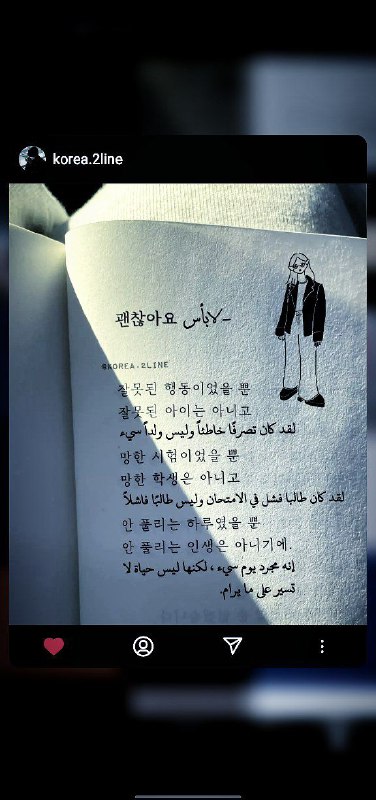 korea.2line
괜찮아요 لابأس_
@KOREA.2LINE
잘못된 행동이었을 뿐
잘못된 아이는 아니고
لقد كان تصرفًا خاطئاً وليس ولداً سيء
망한 시험이었을 뿐
망한 학생은 아니고
لقد كان طالبا فشل في الامتحان وليس طالبًا فاشلاً
안 풀리는 하루였을 뿐
안 풀리는 인생은 아니기에.
إنه مجرد يوم سيء ، لكنها ليس حياة لا
تسير على ما يرام.